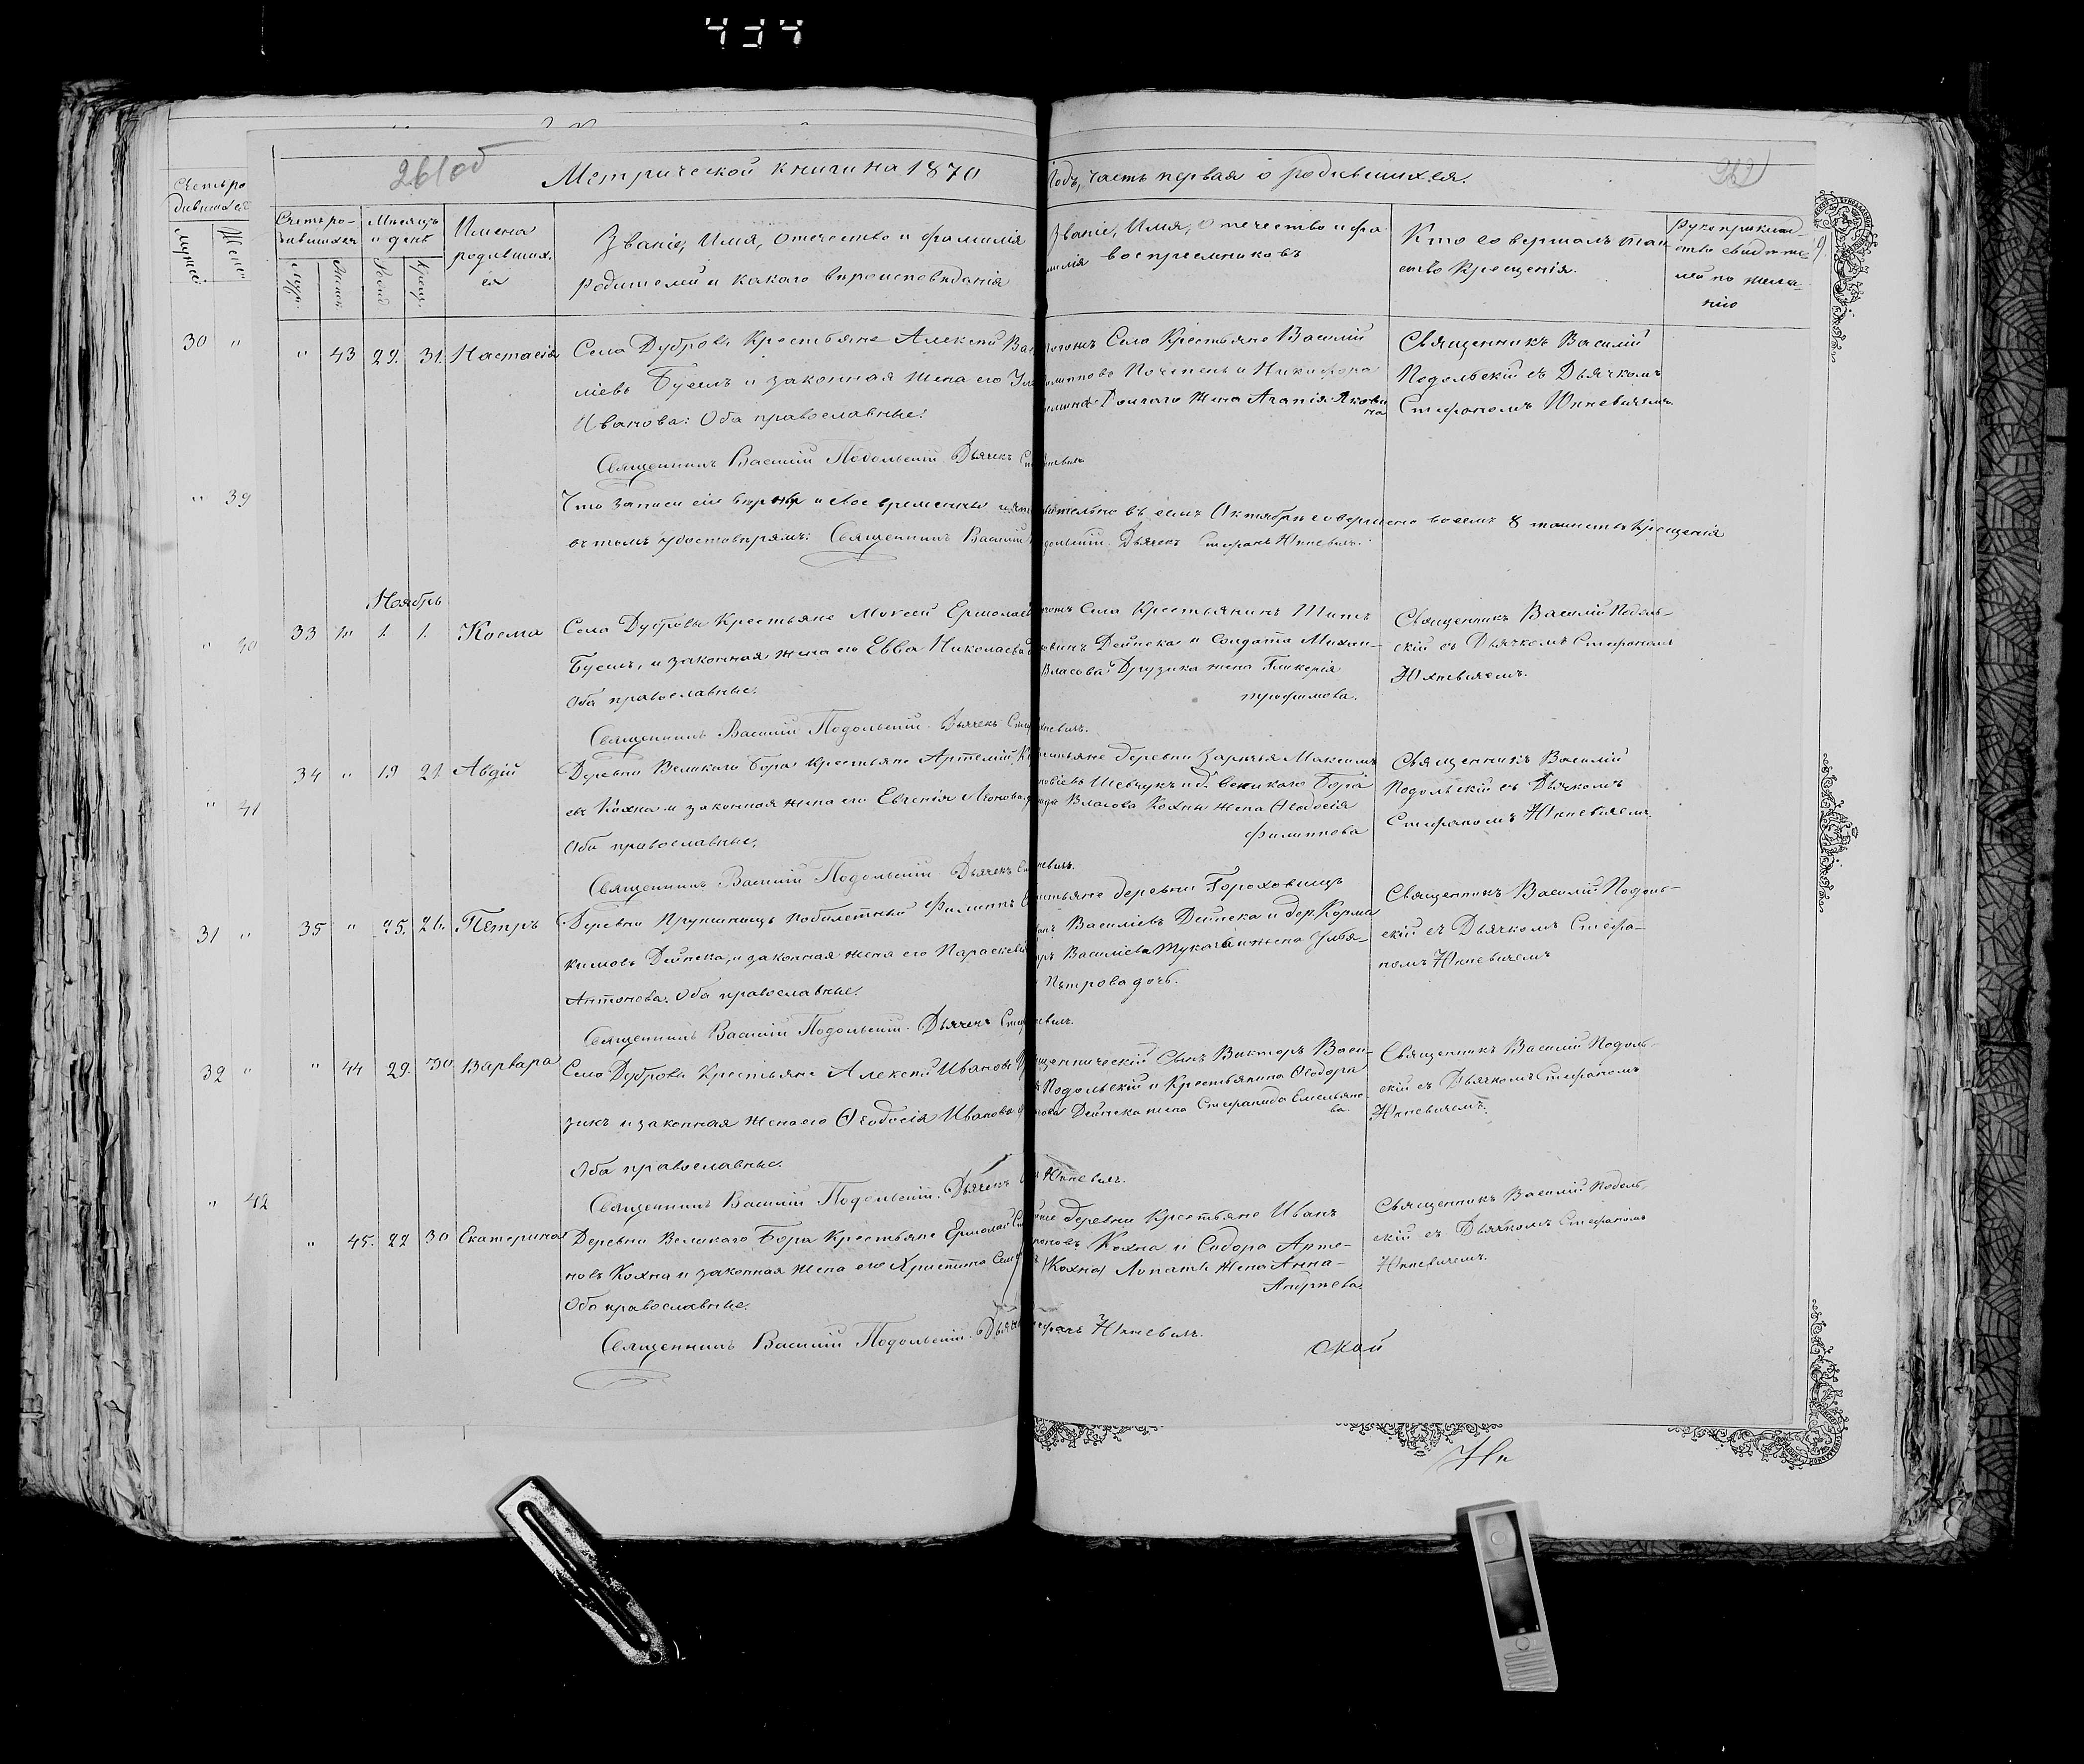 434
261об
Метрической книги на 1870
Годъ, часть первая о родившихся.
Счетъ ро-
дившихся
Мужес.
Женс.
Счетъ ро-
дившихся
Муж.
Женск.
Мѣсяцъ
и день
Рожд.
Крещ.
Имена
родивших.
ся
Званіе, Имя, Отчество и фамилія
родителей и какого вѣроисповѣданія
Званіе, Имя, Отчество и фа
милія воспріемниковъ
Кто совершалъ таи
ство Крещенія.
Рукоприклад
ство свидѣте-
лей по жела-
нію
30 "
" 39
" 40
" 41
31 "
32 "
" 42
" 43 29. 31. Настасія
Села Дубровы Крестьяне Алексѣй Васи
ліевъ Буселъ и законная жена его
Иванова: Оба православные:
Священникъ Василій Подольскій Дьячекъ
Села Крестьяне Василій
Почепень и Никифора
Долгаго жена Агапія Яковле
на
Священникъ Василій
Подольскій съ Дьячкомъ
Стефаномъ Юхневичемъ.
Что записи сіи вѣрны и своевременны и
дѣйствительно въ семъ Октябрѣ совершено восемь 8 таинствъ Крещенія
въ томъ удостовѣряемъ: Священникъ Василій Подольскій Дьячекъ Стефанъ Юхневичъ.
Ноябрь
33 " 1. 1. Косма
Села Дубровы Крестьяне Моисей Ермолаевъ
Буселъ, и законная жена его Евва Николаева
Оба православные.
Священникъ Василій Подольскій. Дьячекъ
Села Крестьянинъ Титъ
Дейнека и Солдата Михаи-
Власова Друзика жена Гликерія
Трофимова.
Священникъ Василій Подоль-
скій съ Дьячкомъ Стефаномъ
Юхневичемъ.
34 " 19 21 Авдій
Деревни Великаго Бора крестьяне Артемій
евъ Кохна и законная жена его Евгенія Леонова
Оба православные,
Священникъ Василій Подольскій Дьячекъ
деревни Заречья Максимъ
Шевчукъ и д. Великаго Бора
Власова Кохны жена Ѳеодосія
Филиппова
Священникъ Василій
Подольскій съ Дьячкомъ
Стефаномъ Юхневичемъ.
35 " 25. 26. Петръ
Деревни Прудища побилетный Филиппъ
кимовъ Дейнека, и законная жена его Параскевія
Антонова. Оба православные.
Священникъ Василій Подольскій. Дьячекъ
деревни Гороховищъ
Василіевъ Дейнека и дер. Корма
Василіева жена Улья-
Петрова дочь.
Священникъ Василій Подоль-
скій съ Дьячкомъ Стефа-
номъ Юхневичемъ
" 44 29. 30 Варвара
Села Дубровы Крестьяне Алексѣй Ивановъ
зикъ и законная жена его Ѳеодосія Иванова
Оба православные.
Священникъ Василій Подольскій. Дьячекъ Юхневичъ.
Священническій Сынъ Викторъ Васи-
Подольскій и Крестьянина Ѳеодора
Дейнека жена Стефанида Емельяно
ва.
Священникъ Василій Подоль-
скій съ Дьячкомъ Стефаномъ
Юхневичемъ.
" 45. 22 30 Екатерина
Деревни Великаго Бора Крестьяне Ермолай
новъ Кохна и законная жена его Христина
Оба православные.
Священникъ Василій Подольскій. Дьячекъ Стефанъ Юхневичъ.
деревни Крестьяне Иванъ
Кохна и Сидора Арте-
(Кохна) Лопати жена Анна
Андреева.
Священникъ Василій Подоль-
скій съ Дьячкомъ Стефаномъ
Юхневичемъ.
ской